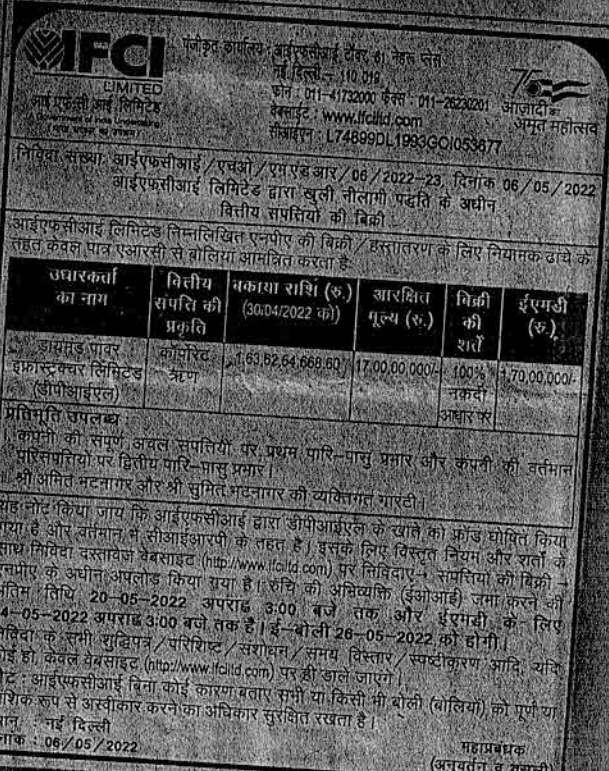 IFCI
LIMITED
आई एफ सी आई लिमिटेड
(भारत सरकार का उपक्रम)
पंजीकृत कार्यालय : आईएफसीआई टॉवर, 61 नेहरू प्लेस
नई दिल्ली – 110 019
फोन : 011-41732000 फैक्स : 011-26230201
वेबसाईट : www.ifciltd.com
सीआईएन : L74899DL1993GOI053677
75
आज़ादी का
अमृत महोत्सव
निविदा संख्याः आईएफसीआई/एचओ/एमएडआर/06/2022-23, दिनांक 06/05/2022
आईएफसीआई लिमिटेड द्वारा खुली नीलामी पद्धति के अधीन
वित्तीय संपत्तियों की बिक्री
आईएफसीआई लिमिटेड निम्नलिखित एनपीए की बिक्री/हस्तांतरण के लिए नियामक ढांचे के
तहत केवल पात्र एआरसी से बोलियां आमंत्रित करता है:
उधारकर्ता का नाम
वित्तीय संपत्ति की प्रकृति
बकाया राशि (रु.) (30/04/2022 को)
आरक्षित मूल्य (रु.)
बिक्री की शर्तें
ईएमडी (रु.)
डायमंड पावर इंफ्रास्ट्रक्चर लिमिटेड (डीपीआईएल)
कॉर्पोरेट ऋण
1,63,62,64,668.60
17,00,00,000/-
100% नकदी आधार पर
1,70,00,000/-
प्रतिभूति उपलब्ध :
कंपनी की संपूर्ण अचल संपत्तियों पर प्रथम पारि-पासु प्रभार और कंपनी की वर्तमान
परिसंपत्तियों पर द्वितीय पारि-पासु प्रभार।
श्री अमित भटनागर और श्री सुमित भटनागर की व्यक्तिगत गारंटी।
यह नोट किया जाय कि आईएफसीआई द्वारा डीपीआईएल के खाते को फ्रॉड घोषित किया
गया है और वर्तमान में सीआईआरपी के तहत है। इसके लिए विस्तृत नियम और शर्तों के
साथ निविदा दस्तावेज वेबसाइट (http://www.ifciltd.com) पर निविदाएं→ संपत्तियों की बिक्री →
एनपीए के अधीन अपलोड किया गया है। रुचि की अभिव्यक्ति (ईओआई) जमा करने की
अंतिम तिथि 20-05-2022 अपराह्न 3:00 बजे तक और ईएमडी के लिए
24-05-2022 अपराह्न 3:00 बजे तक है। ई-बोली 26-05-2022 को होगी।
निविदा के सभी शुद्धिपत्र/परिशिष्ट/संशोधन/समय विस्तार/स्पष्टीकरण आदि, यदि
कोई हो, केवल वेबसाइट (http://www.ifciltd.com) पर ही डाले जाएंगे।
नोट : आईएफसीआई बिना कोई कारण बताए सभी या किसी भी बोली (बोलियों) को पूर्ण या
आंशिक रूप से अस्वीकार करने का अधिकार सुरक्षित रखता है।
स्थान : नई दिल्ली
दिनांक : 06/05/2022
महाप्रबंधक
(अनुवर्तन व वसूली)